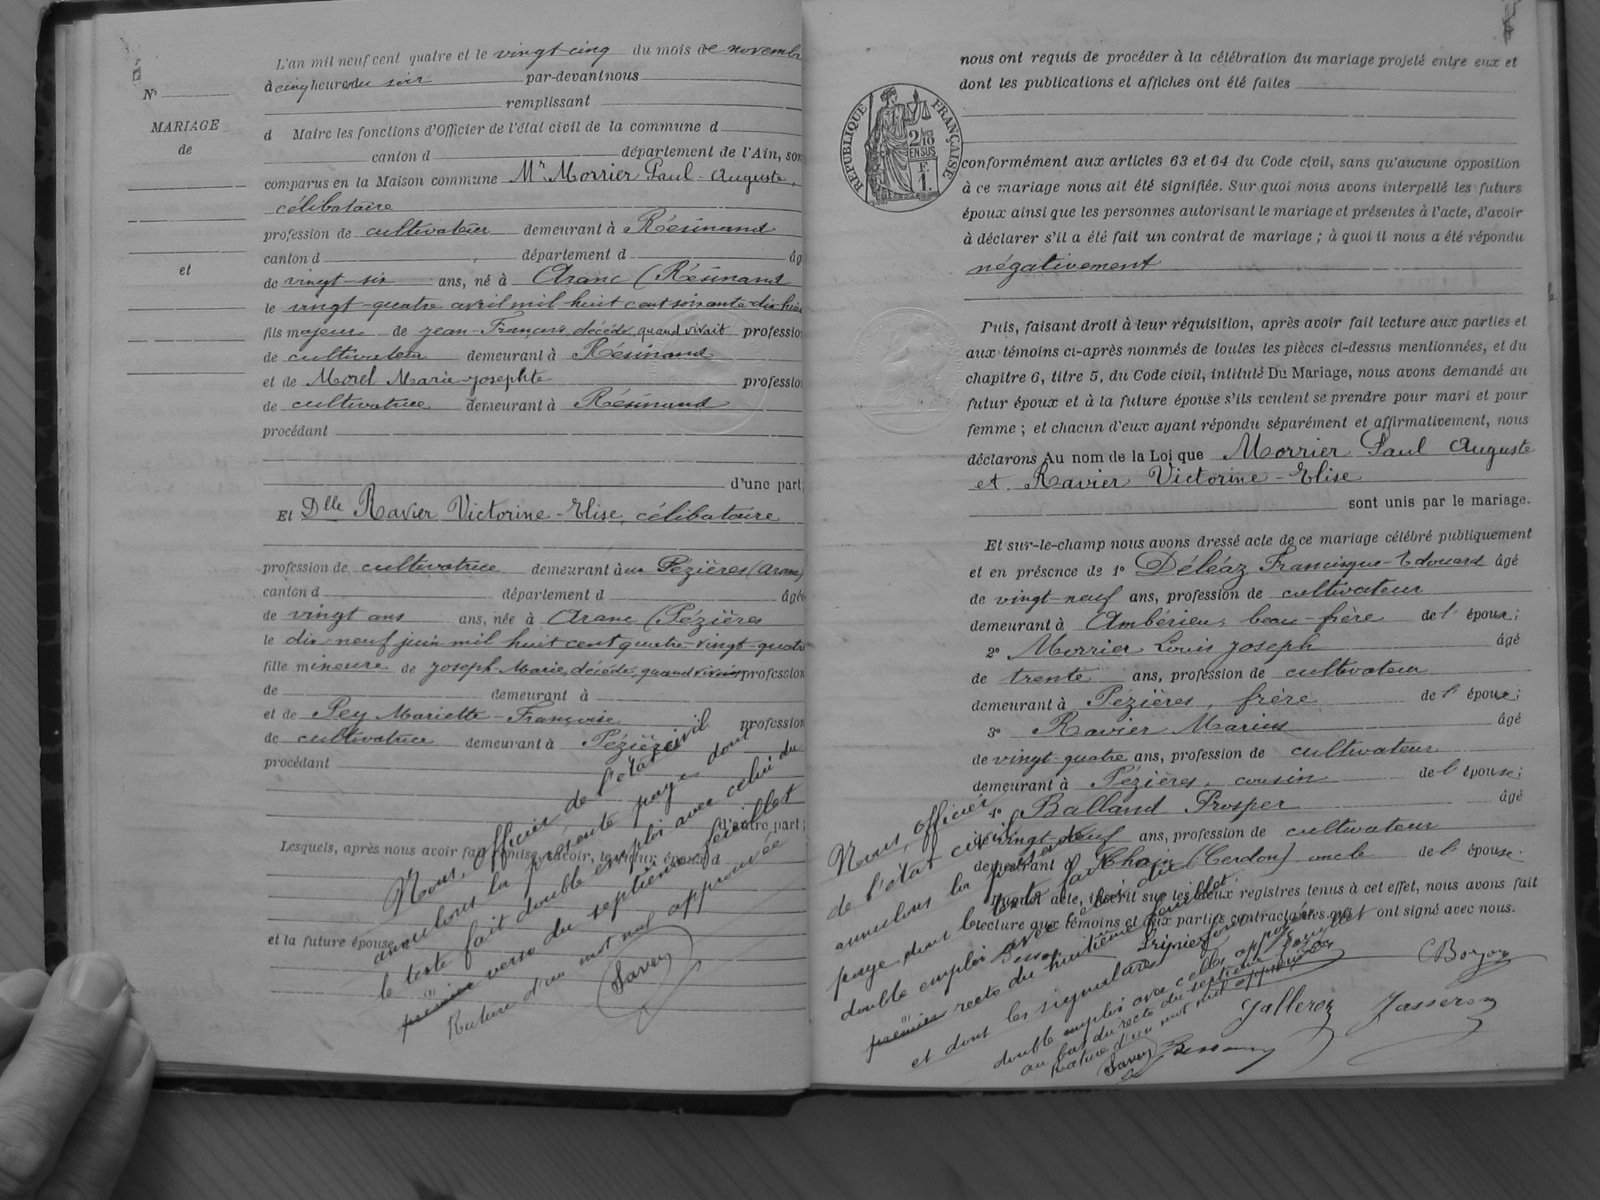 L'an mil neuf cent quatre et le vingt-cinq du mois de novemb
à cinq heures du soir par-devant nous
remplissant
N°
MARIAGE
de
et
d Maire les fonctions d'Officier de l'état civil de la commune d
canton d département de l'Ain, son
comparus en la Maison commune Mr Morrier Paul-Auguste,
célibataire
profession de cultivateur demeurant à Résinand
canton d département d âg
de vingt-six ans, né à Aranc (Résinand
le vingt-quatre avril mil huit cent soixante-dix huit
fils majeur de Jean-François, décédé, quand vivait professio
de cultivateur demeurant à Résinand
et de Morel Marie-Josephte professio
de cultivatrice demeurant à Résinand
procédant
d'une part
Et Dlle Ravier Victorine-Elise, célibataire
profession de cultivatrice demeurant à Pézières (Aranc)
canton d département d âgé
de vingt ans ans, née à Aranc (Pézières
le dix-neuf juin mil huit cent quatre-vingt-quatre
fille mineure de Joseph-Marie, décédé, quand vivait profession
de demeurant à
et de Pey Mariette-Françoise profession
de cultivatrice demeurant à Pézières
procédant
d'autre part;
Lesquels, après nous avoir fait
et la future épouse
Nous, officier de l'état civil
annulons la présente page dont
le texte fait double emploi avec celui du
premier verso du septième feuillet
Rature d'un mot nul approuvée
Savey
nous ont requis de procéder à la célébration du mariage projeté entre eux et
dont les publications et affiches ont été faites
RÉPUBLIQUE FRANÇAISE
2/10
EN SUS
F
1.
conformément aux articles 63 et 64 du Code civil, sans qu'aucune opposition
à ce mariage nous ait été signifiée. Sur quoi nous avons interpellé les futurs
époux ainsi que les personnes autorisant le mariage et présentes à l'acte, d'avoir
à déclarer s'il a été fait un contrat de mariage ; à quoi il nous a été répondu
négativement
Puis, faisant droit à leur réquisition, après avoir fait lecture aux parties et
aux témoins ci-après nommés de toutes les pièces ci-dessus mentionnées, et du
chapitre 6, titre 5, du Code civil, intitulé Du Mariage, nous avons demandé au
futur époux et à la future épouse s'ils veulent se prendre pour mari et pour
femme ; et chacun d'eux ayant répondu séparément et affirmativement, nous
déclarons Au nom de la Loi que Morrier Paul Auguste
et Ravier Victorine-Elise
sont unis par le mariage.
Et sur-le-champ nous avons dressé acte de ce mariage célébré publiquement
et en présence de 1° Déléaz Francisque-Edouard âgé
de vingt-neuf ans, profession de cultivateur
demeurant à Ambérieu, beau-frère de l' époux;
2° Morrier Louis Joseph âgé
de trente ans, profession de cultivateur
demeurant à Pézières, frère de l' époux;
3° Ravier Marius âgé
de vingt-quatre ans, profession de cultivateur
demeurant à Pézières, cousin de l' épouse;
4° Balland Prosper âgé
de vingt-neuf ans, profession de cultivateur
demeurant à (Cerdon) oncle de l' épouse.
Duquel acte, inscrit sur les deux registres tenus à cet effet, nous avons fait
lecture aux témoins et aux parties contractantes qui ont signé avec nous.
Nous, officier
de l'état civil
annulons la présente
page dont le texte fait
double emploi avec celui du
premier recto du huitième feuillet
et dont les signatures
double emploi avec celles apposées
au bas du recto du septième feuillet
Rature d'un mot nul approuvée
Savey